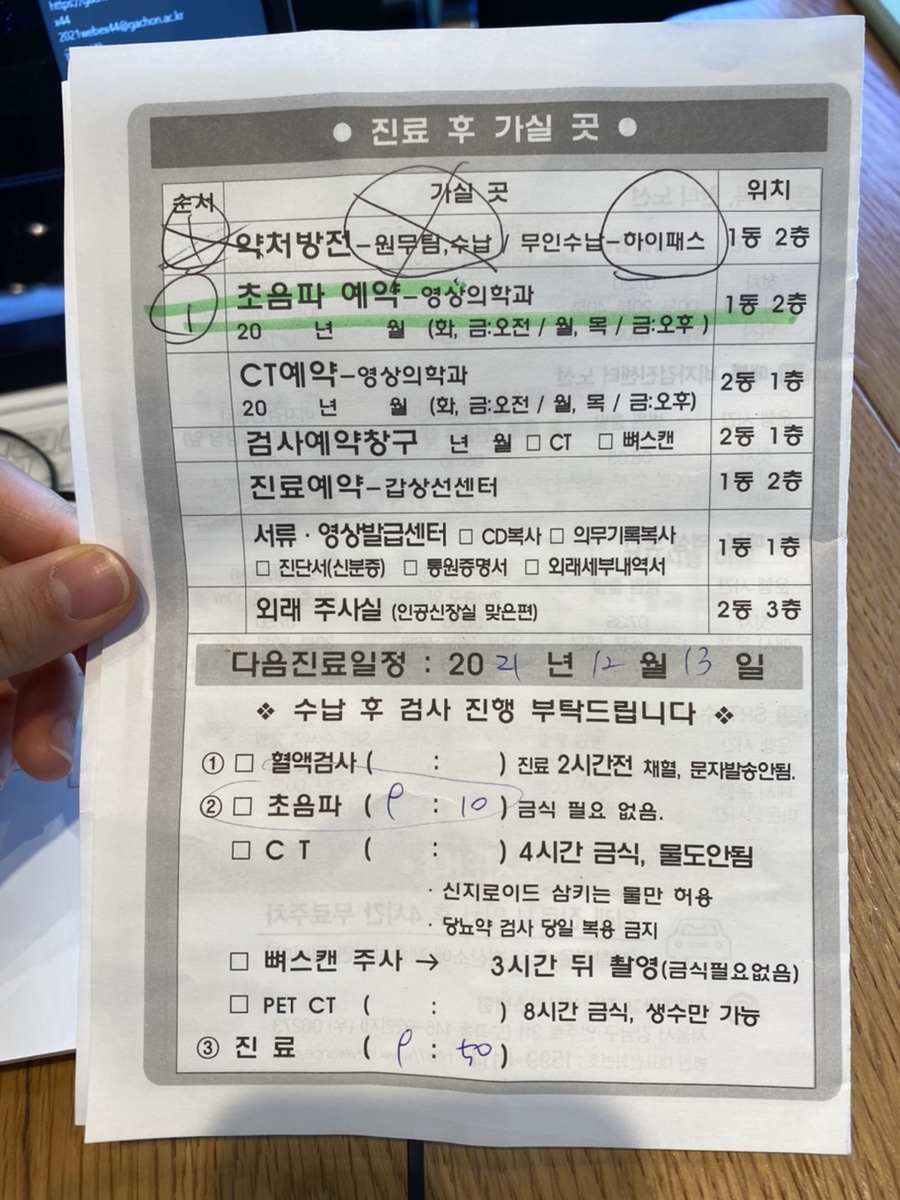 https://gachon.ac.kr
x44
2021webex44@gachon.ac.kr
● 진료 후 가실 곳 ●
순서 가실 곳 위치
약처방전-원무팀,수납 / 무인수납-하이패스 1동 2층
1 초음파 예약-영상의학과 1동 2층
20 년 월 (화, 금:오전 / 월, 목 / 금:오후 )
CT예약-영상의학과 2동 1층
20 년 월 (화, 금:오전 / 월, 목 / 금:오후)
검사예약창구 년 월 □ CT □ 뼈스캔 2동 1층
진료예약-갑상선센터 1동 2층
서류·영상발급센터 □ CD복사 □ 의무기록복사 1동 1층
□ 진단서(신분증) □ 통원증명서 □ 외래세부내역서
외래 주사실 (인공신장실 맞은편) 2동 3층
다음진료일정 : 2021 년 12 월 13 일
❖ 수납 후 검사 진행 부탁드립니다 ❖
① □ 혈액검사 ( : ) 진료 2시간전 채혈, 문자발송안됨.
② □ 초음파 ( : 10 ) 금식 필요 없음.
□ C T ( : ) 4시간 금식, 물도안됨
· 신지로이드 삼키는 물만 허용
· 당뇨약 검사 당일 복용 금지
□ 뼈스캔 주사 → 3시간 뒤 촬영(금식필요없음)
□ PET CT ( : ) 8시간 금식, 생수만 가능
③ 진 료 ( : 50 )